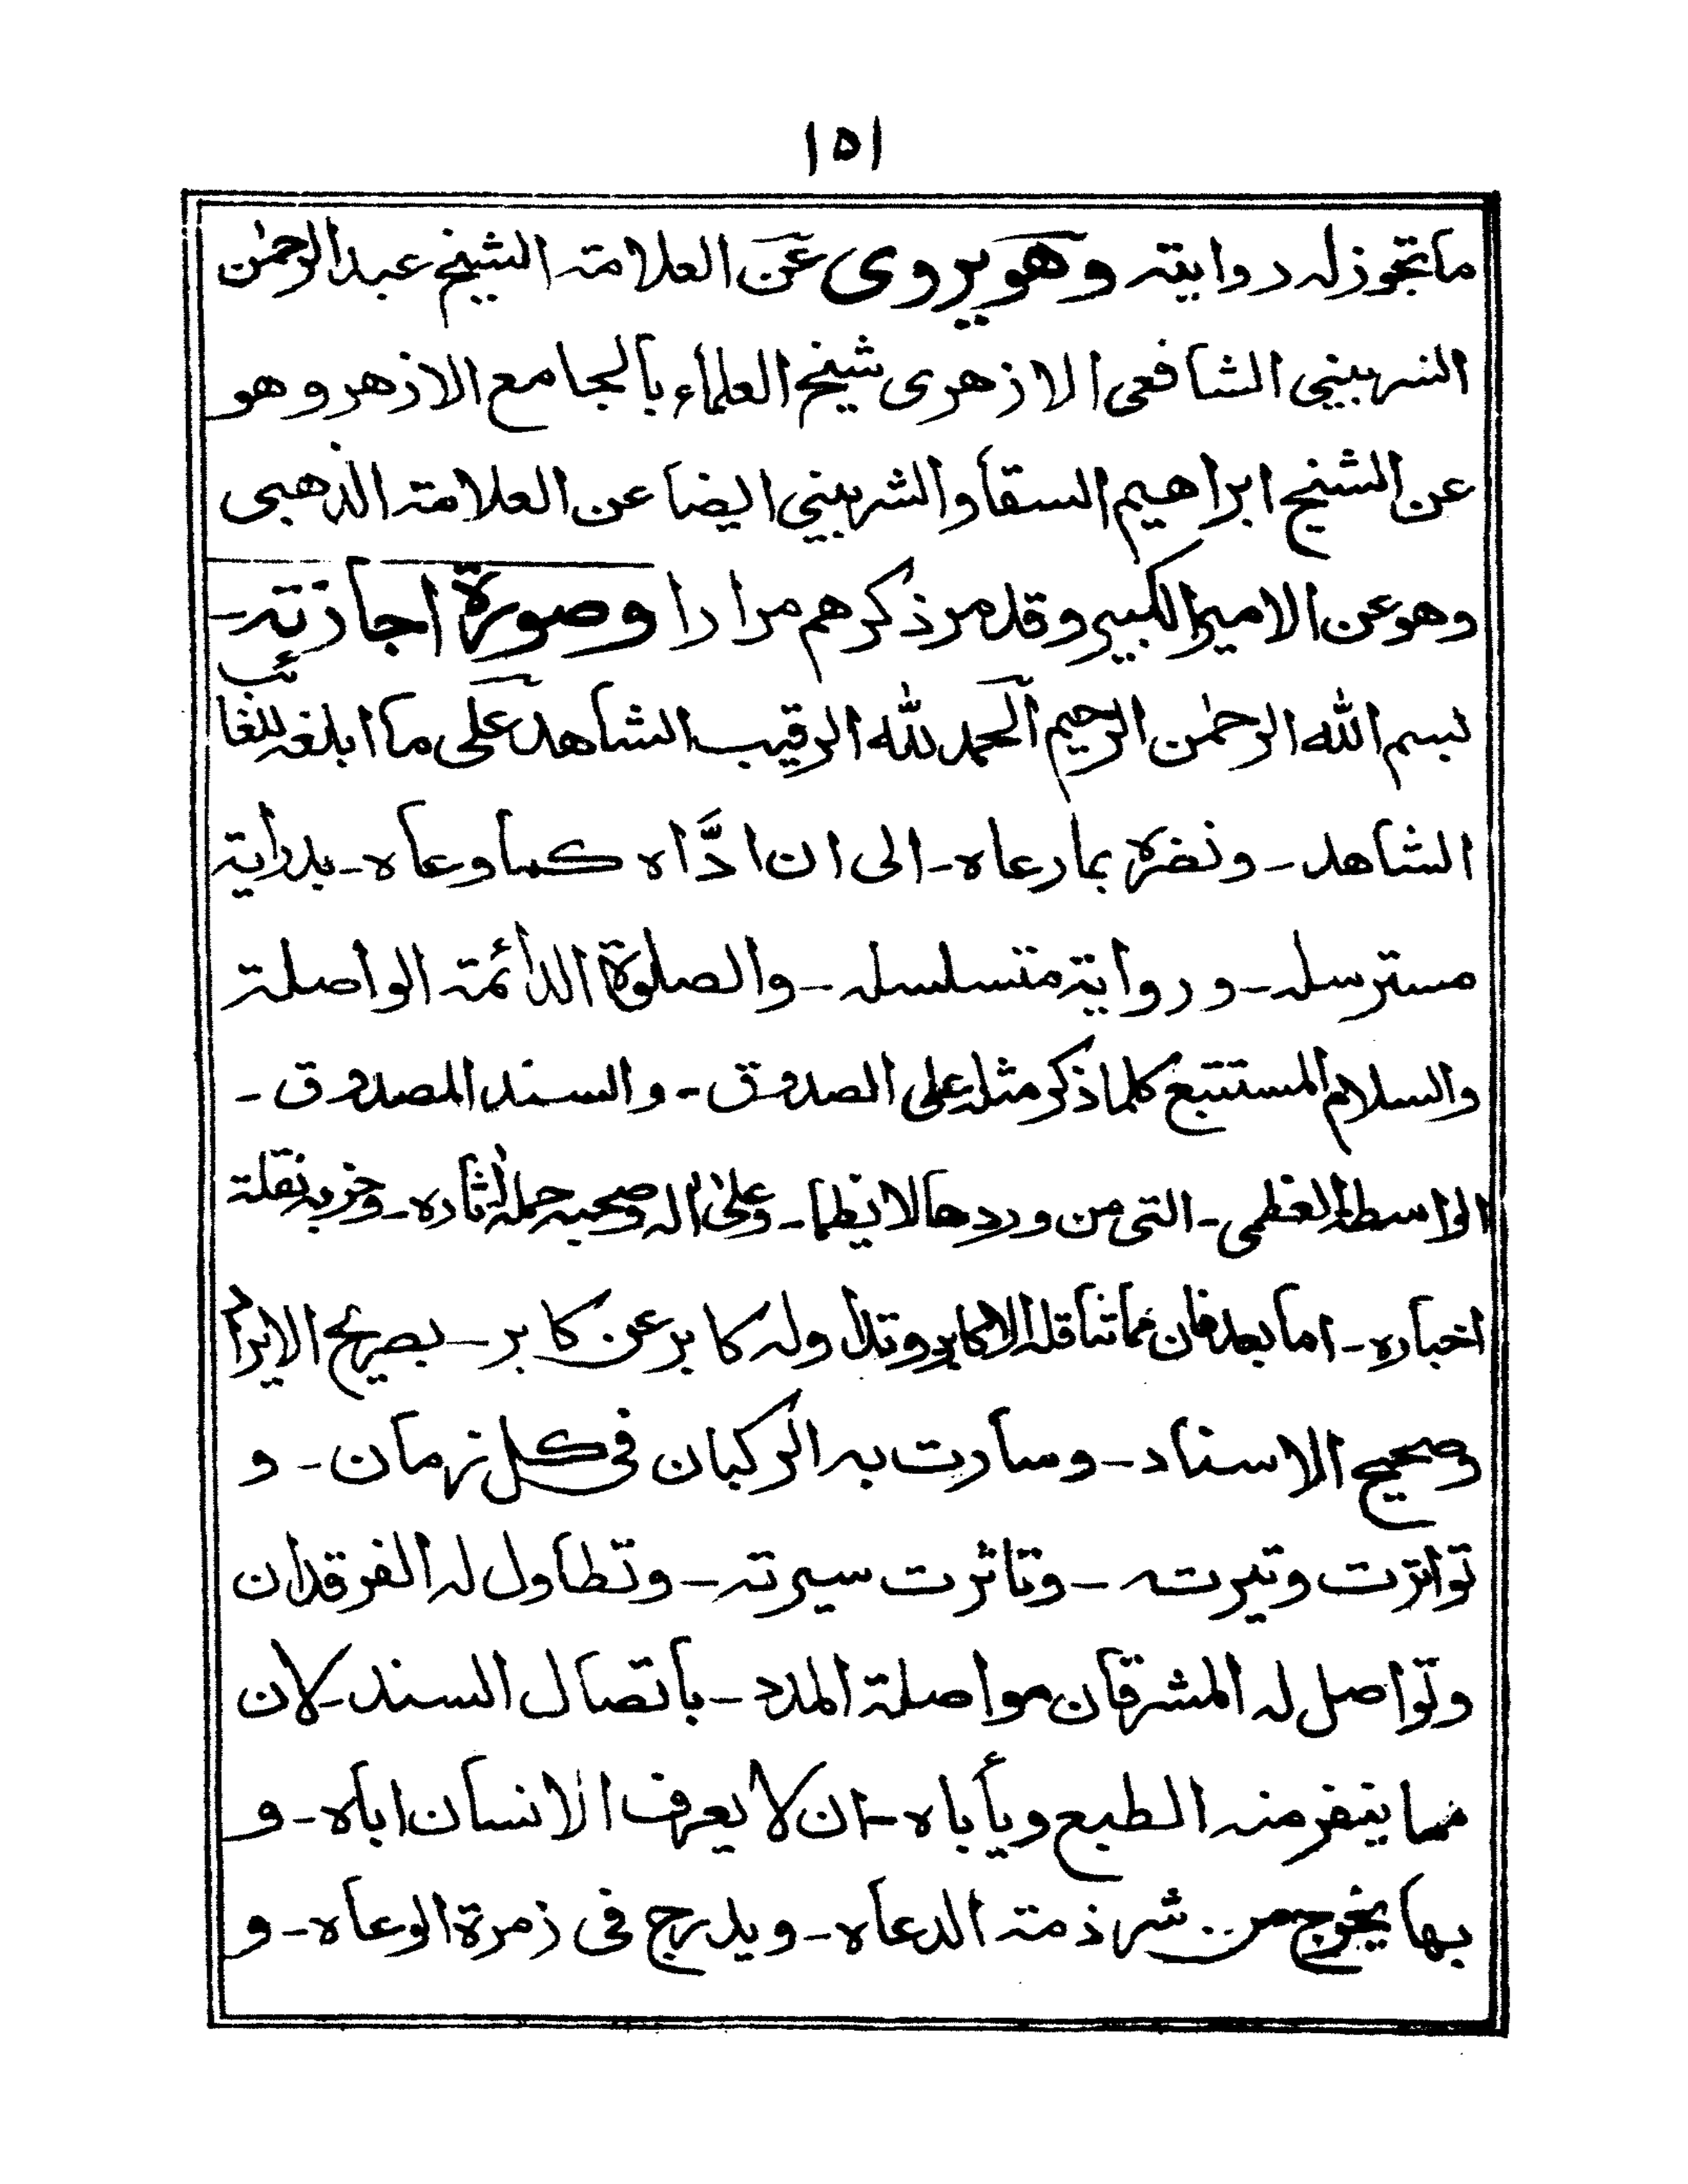 ١٥١
ما تجوز له روايته وهو يروى عن العلامة الشيخ عبد الرحمٰن
الشربيني الشافعى الازهرى شيخ العلماء بالجامع الازهر وهو
عن الشيخ ابراهيم السقا والشربيني ايضا عن العلامة الذهبى
وهو عن الامير الكبير وقد مر ذكرهم مرارا وصورة اجازته ـ
بسم الله الرحمٰن الرحيم الحمد لله الرقيب الشاهد على ما ابلغه للغائب
الشاهد ـ ونضره بما رعاه ـ الى ان ادَّاه كما وعاه ـ بدراية
مسترسله ـ و رواية متسلسله ـ والصلوة الدائمة الواصلة
والسلام المستتبع كلما ذكر مثله على الصدوق ـ والسند المصدوق ـ
الواسطة العظمى ـ التى من وردها لا يظما ـ وعلىٰ اله وصحبه حملة اٰثاره ـ وحزبه نقلة
اخباره ـ اما بعد فان مما تناقله الاكابر وتداوله كابر عن كابر ـ بصريح الايراد
وصحيح الاسناد ـ وسارت به الركبان فى كل زمان ـ و
تواترت وتيرته ـ وتاثرت سيرته ـ وتطاول له الفرقدان
وتواصل له المشرقان مواصلة المدد ـ باتصال السند ـ لان
مما ينفر منه الطبع ويأباه ـ ان لا يعرف الانسان اباه ـ و
بها يخرج من شرذمة الدعاه ـ ويدرج فى زمرة الوعاه ـ و